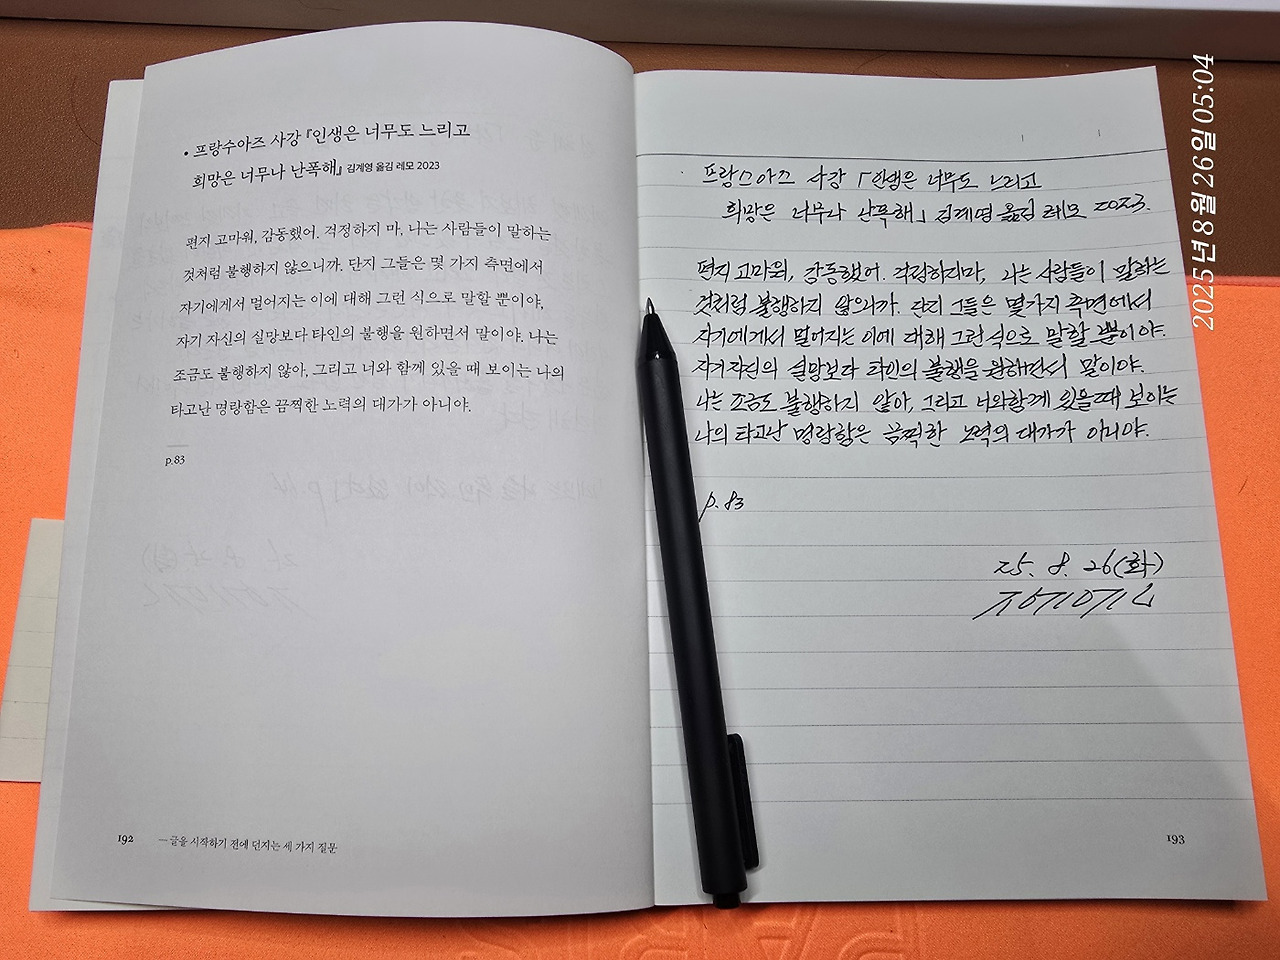 • 프랑수아즈 사강 『인생은 너무도 느리고
희망은 너무나 난폭해』 김계영 옮김 레모 2023
편지 고마워, 감동했어. 걱정하지 마, 나는 사람들이 말하는
것처럼 불행하지 않으니까. 단지 그들은 몇 가지 측면에서
자기에게서 멀어지는 이에 대해 그런 식으로 말할 뿐이야,
자기 자신의 실망보다 타인의 불행을 원하면서 말이야. 나는
조금도 불행하지 않아, 그리고 너와 함께 있을 때 보이는 나의
타고난 명랑함은 끔찍한 노력의 대가가 아니야.
p.83
192 — 글을 시작하기 전에 던지는 세 가지 질문
프랑스아즈 사강 「인생은 너무도 느리고
희망은 너무나 난폭해」 김계영 옮김 레모 2023.
편지 고마워, 감동했어. 걱정하지마, 나는 사람들이 말하는
것처럼 불행하지 않으니까. 단지 그들은 몇가지 측면에서
자기에게서 멀어지는 이에 대해 그런 식으로 말할 뿐이야.
자기자신의 실망보다 타인의 불행을 원해면서 말이야.
나는 조금도 불행하지 않아, 그리고 너와함께 있을때 보이는
나의 타고난 명랑함은 끔찍한 노력의 대가가 아니야.
p. 83
25. 8. 26(화)
193
2025년 8월 26일 05:04